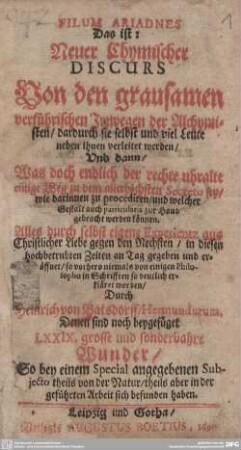 FILUM ARIADNES
Das ist:
Neuer Chymischer
DISCURS
Von den grausamen
verführischen Irrwegen der Alchymi-
sten/ dardurch sie selbst und viel Leute
neben ihnen verleitet werden/
Und dann/
Was doch endlich der rechte uhralte
einige Weg zu dem allerhöchsten Secreto sey/
wie darinnen zu procediren/ und welcher
Gestalt auch particularia zur Hand
gebracht werden können.
Alles durch selbst eigene Experientz aus
Christlicher Liebe gegen den Nechsten/ in diesen
hochbetrübten Zeiten an Tag gegeben und er-
öffnet/ so vorhero niemals von einigen Philo-
sophis in Schrifften so deutlich er-
kläret worden/
Durch
Heinrich von Batsdorff/ Hermundurum.
Denen sind noch beygefüget
LXXIX. grosse und sonderbahre
Wunder/
So bey einem Special angegebenen Sub-
jecto theils von der Natur/ theils aber in der
geführten Arbeit sich befunden haben.
Leipzig und Gotha/
AUGUSTUS BOETIUS,